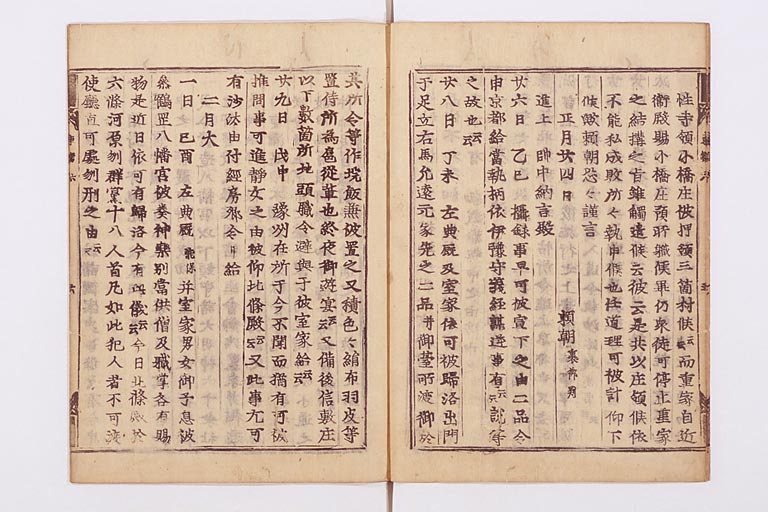 性寺領小橋庄被押領三箇村候云々而重家自近
衛殿賜小橋庄預所職候畢仍取徒可停止重家
之結構之旨雖觸遣候云彼云是共以庄領候依
不能私成敗所々執申候也任道理可被計仰下
候歟頼朝恐々謹言
正月廿四日 頼朝
進上 帥中納言殿
廿六日 乙巳 攝録事早可被宣下之由二品令
申京都給當執柄依伊豫守義經謀逆事有云々説等
之故也云々
廿八日 丁未 左典厩及室家依可被歸洛出門
于足立右馬允遠元家先之二品并御臺所渡御於
其所令等作垸飯無被置之又積色々絹布羽皮等
置侍所為扈從輩也終夜御遊宴云々又備後信敷庄
以下數箇所地頭職令避與于彼室家給云々
廿九日 戊申 豫州在所于今不聞而猶有可被
推問事可進靜女之由被仰北條殿云々又此事尤可
有沙汰由付經房卿令申給
二月大
一日 己酉 左典厩能保并室家男女御子息被
參鶴岡八幡宮被奏神樂別當供僧及職掌各有賜
物是近日依可有歸洛今有此儀云々今日北條殿於
六條河原刎群黨十八人首凡如此犯人者不可渡
使廳直可處刎刑之由云々